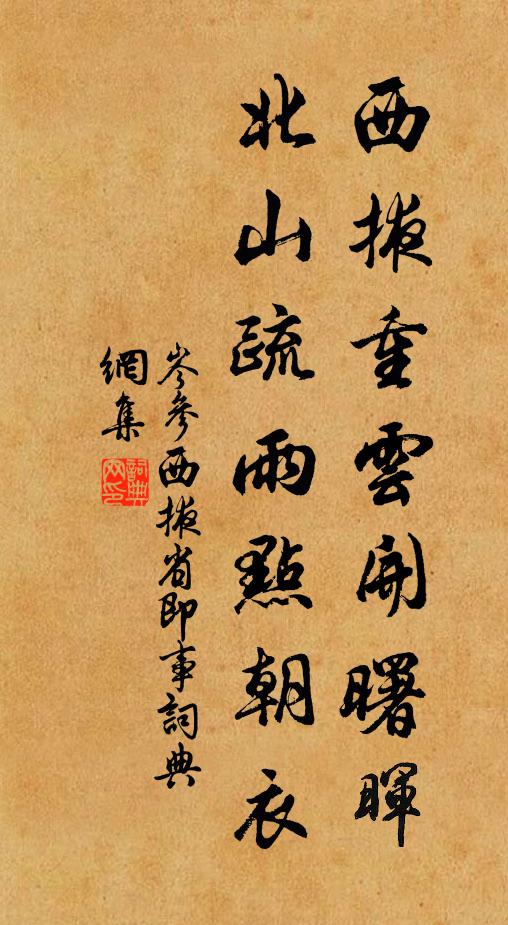 西掖重雲開曙暉
北山疏雨點朝衣
岑參西掖省即事詞典
網集
詞典
网印